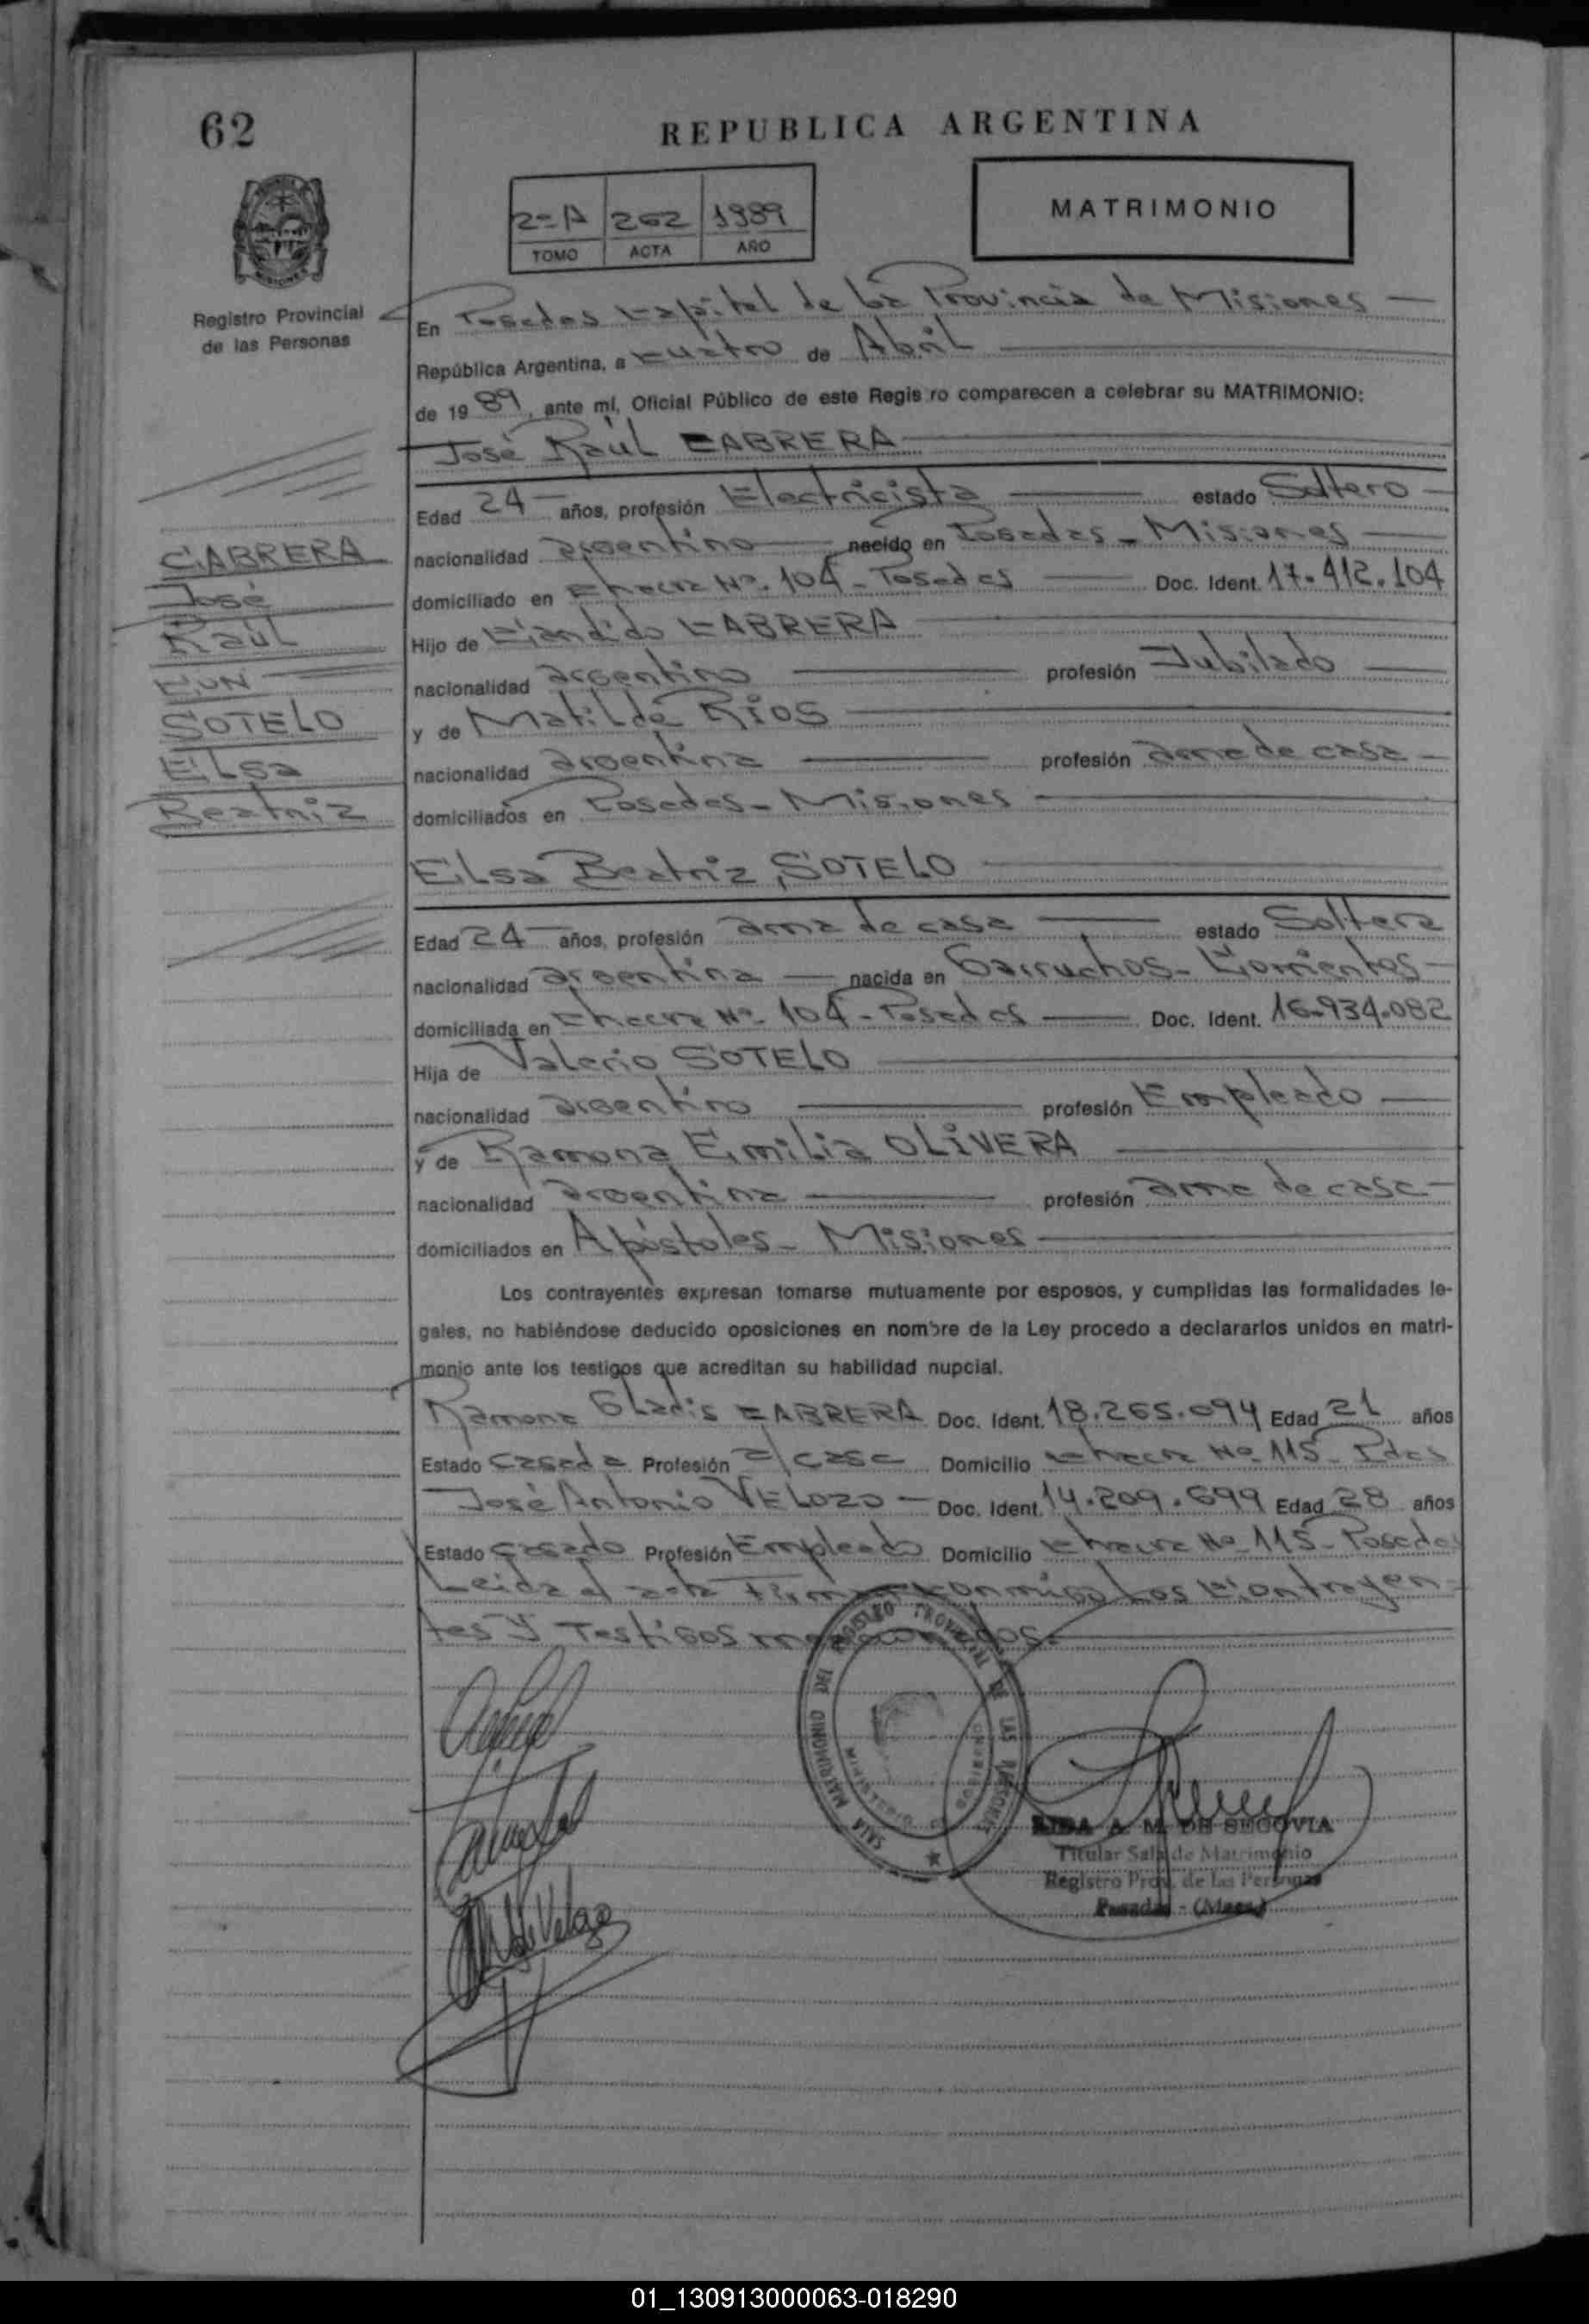 62
REPUBLICA ARGENTINA
2º A 262 1989
TOMO ACTA AÑO
MATRIMONIO
Registro Provincial
de las Personas
En Posadas Capital de la Provincia de Misiones
República Argentina, a cuatro de Abril
de 1989, ante mí, Oficial Público de este Regis ro comparecen a celebrar su MATRIMONIO:
José Raúl CABRERA
Edad 24 años, profesión Electricista estado Soltero
nacionalidad argentino nacido en Posadas - Misiones
domiciliado en Chacra Nº. 104 - Posadas Doc. Ident. 17.412.104
Hijo de Cándido CABRERA
nacionalidad argentino profesión Jubilado
y de Matilde RIOS
nacionalidad argentina profesión ama de casa
domiciliados en Posadas - Misiones
CABRERA
José
Raúl
CON
SOTELO
Elsa
Beatriz
Elsa Beatriz SOTELO
Edad 24 años, profesión ama de casa estado Soltera
nacionalidad argentina nacida en Garruchos - Corrientes
domiciliada en Chacra Nº - 104 - Posadas Doc. Ident. 16.934.082
Hija de Valerio SOTELO
nacionalidad argentino profesión Empleado
y de Ramona Emilia OLIVERA
nacionalidad argentina profesión ama de casa
domiciliados en Apóstoles - Misiones
Los contrayentes expresan tomarse mutuamente por esposos, y cumplidas las formalidades le-
gales, no habiéndose deducido oposiciones en nombre de la Ley procedo a declararlos unidos en matri-
monio ante los testigos que acreditan su habilidad nupcial.
Ramona Gladis CABRERA Doc. Ident. 18.265.094 Edad 21 años
Estado casada Profesión a/casa Domicilio Chacra Nº 115 - Pdas
José Antonio VELOZO Doc. Ident. 14.209.699 Edad 28 años
Estado casado Profesión Empleado Domicilio Chacra Nº 115 - Posadas
Leida el acta Firman conmigo Los Contrayen-
tes y Testigos mencionados.
SALA MATRIMONIO DEL REGISTRO PROVINCIAL DE LAS PERSONAS
MINISTERIO DE GOBIERNO
A. M. DE SEGOVIA
Titular Sala de Matrimonio
Registro Prov. de las Personas
Posadas - (Mnes.)
01_130913000063-018290